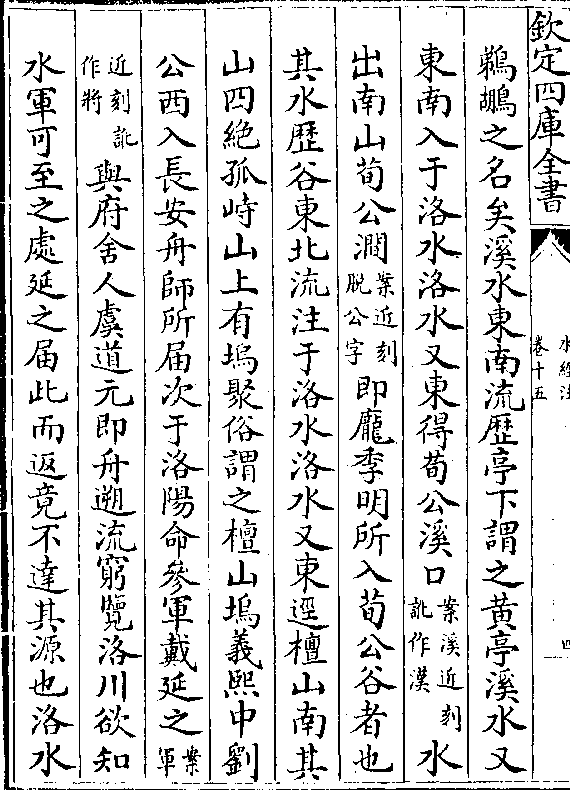 欽定四庫全書
水經注
卷十五
四
鵜鶘之名矣溪水東南流歷亭下謂之黄亭溪水又
東南入于洛水洛水又東得荀公溪口案溪近刻訛作漢水
出南山荀公澗案近刻脱公字即龐季明所入荀公谷者也
其水歷谷東北流注于洛水洛水又東逕檀山南其
山四絶孤峙山上有塢聚俗謂之檀山塢義熙中劉
公西入長安舟師所届次于洛陽命參軍戴延之案軍
近刻訛作將與府舍人虞道元即舟遡流窮覽洛川欲知
水軍可至之處延之届此而返竟不達其源也洛水